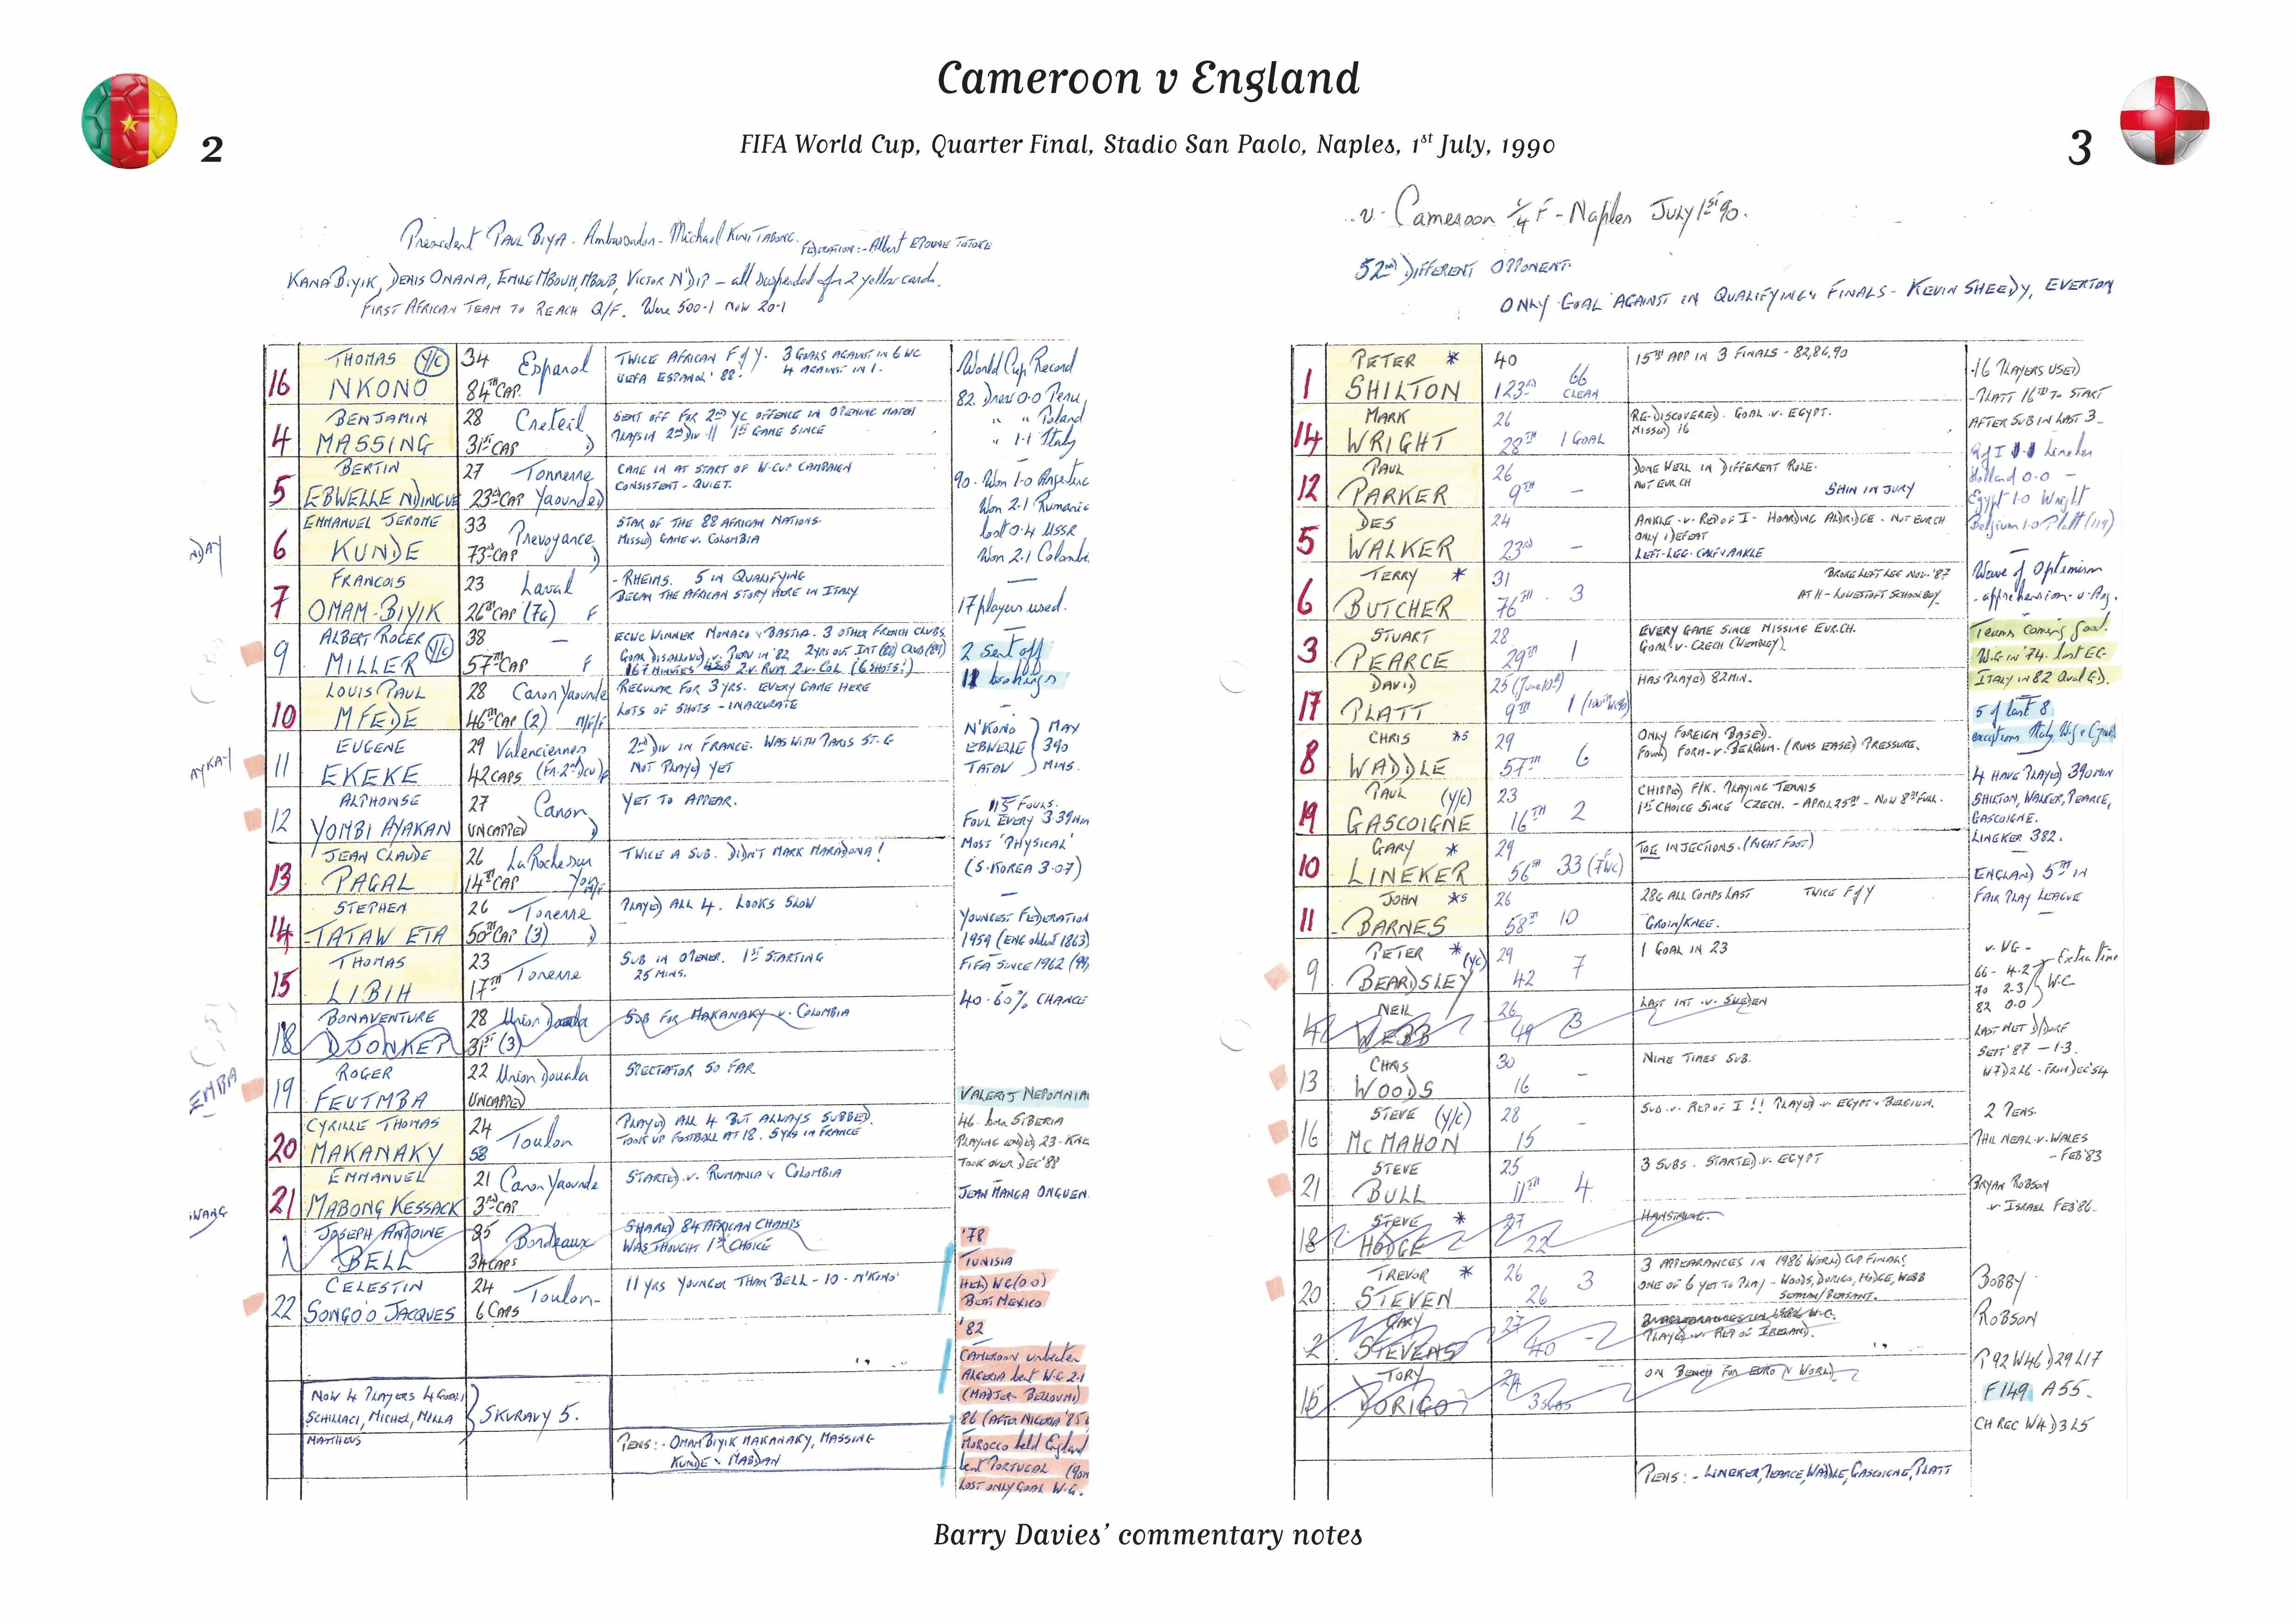 Cameroon v England
2
FIFA World Cup, Quarter Final, Stadio San Paolo, Naples, 1st July, 1990
3
President PAUL BIYA. Ambassador - Michael
FEDERATION:- Albert
KANA BIYIK, DENIS ONANA, EMILE MBOUH, MBOUB, VICTOR N'DIP - all suspended for 2 yellow cards.
FIRST AFRICAN TEAM TO REACH Q/F. Were 500-1 now 20-1
16 THOMAS NKONO Y/C
34 Espanol
84TH CAP.
TWICE AFRICAN F of Y. 3 GOALS AGAINST IN 6 WC
UEFA ESPANOL '88. 4 AGAINST IN 1.
4 BENJAMIN MASSING
28 Creteil
31ST CAP D
SENT OFF FOR 2ND YC OFFENCE IN OPENING MATCH
PLAYS IN 2ND DIV 1ST GAME SINCE
5 BERTIN EBWELLE NDINGUE
27 Tonnerre
23RD CAP Yaounde D
CAME IN AT START OF W-CUP CAMPAIGN
CONSISTENT - QUIET.
NDAY
6 EMMANUEL JEROME KUNDE
33 Prevoyance
73RD CAP D
STAR OF THE 88 AFRICAN NATIONS
MISSED GAME v. COLOMBIA
7 FRANCOIS OMAM-BIYIK
23 Laval
26TH CAP (7G) F
- RHEIMS. 5 IN QUALIFYING
BEGAN THE AFRICAN STORY HERE IN ITALY
9 ALBERT ROGER MILLER Y/C
38 -
57TH CAP F
ECWC WINNER MONACO v BASTIA. 3 OTHER FRENCH CLUBS
GOAL DISALLOWED v. PERU IN '82 2YRS OUT INT (88) CLUB (89)
167 MINUTES 2 v. RUM 2 v. COL (6 SHOTS!)
10 LOUIS PAUL MFEDE
28 Canon Yaounde
46TH CAP (2) M/F
REGULAR FOR 3 YRS. EVERY GAME HERE
LOTS OF SHOTS - INACCURATE
AYKAY
11 EUGENE EKEKE
29 Valenciennes
42 CAPS (FR. 2ND DIV) F
2ND DIV IN FRANCE. WAS WITH PARIS ST. G
NOT PLAYED YET
12 ALPHONSE YOMBI AYAKAN
27 Canon
UNCAPPED D
YET TO APPEAR.
13 JEAN CLAUDE PAGAL
26 La Roche sur
14TH CAP Yon M/F
TWICE A SUB. DIDN'T MARK MARADONA!
14 STEPHEN TATAW ETA
26 Tonerre
50TH CAP (3) D
PLAYED ALL 4. LOOKS SLOW
15 THOMAS LIBIH
23
17TH Tonerre
SUB IN OPENER. 1ST STARTING
25 MINS.
18 BONAVENTURE DJONKEP
28 Union Douala
31ST (3)
SUB FOR MAKANAKY v. COLOMBIA
EMBA
19 ROGER FEUTMBA
22 Union Douala
UNCAPPED
SPECTATOR SO FAR
20 CYRILLE THOMAS MAKANAKY
24 Toulon
58
PLAYED ALL 4 BUT ALWAYS SUBBED.
TOOK UP FOOTBALL AT 18. 5 YRS IN FRANCE
21 EMMANUEL MABONG KESSACK
21 Canon Yaounde
3RD CAP
STARTED v. RUMANIA v COLOMBIA
IWANG
1 JOSEPH ANTOINE BELL
35 Bordeaux
34 CAPS
SHARED 84 AFRICAN CHAMPS
WAS THOUGHT 1ST CHOICE
22 CELESTIN SONGO'O JACQUES
24 Toulon
6 CAPS
11 YRS YOUNGER THAN BELL - 10 - N'KONO
NOW 4 PLAYERS 4 GOALS
SCHILLACI, MICHEL, MILLA
MATTHEUS
SKURAVY 5.
PENS:- OMAM BIYIK MAKANAKY, MASSING
KUNDE v MABDAN
World Cup Record
82. Drew 0.0 Peru
" " Poland
" 1.1 Italy
90. Won 1-0 Argentina
Won 2.1 Rumania
lost 0.4 USSR
Won 2.1 Colombia
17 players used.
2 sent off
11 bookings
N'KONO
EBWELLE
TATAW
MAX
390
MINS.
115 FOULS.
FOUL EVERY 3.39 MIN
MOST 'PHYSICAL'
(S. KOREA 3.07)
YOUNGEST FEDERATION
1959 (ENG oldest 1863)
FIFA SINCE 1962
40-60% CHANCE
VALERIJ NEPOMNIA
46 - born SIBERIA
PLAYING ENDED 23 - KNE
TOOK OVER DEC '88
JEAN MANGA ONGUEN
'78
TUNISIA
HELD WG (0.0)
BEAT MEXICO
'82
CAMEROON unbeaten
ALGERIA beat W-G 2.1
(MADJER BELLOUMI)
86 (AFTER NIGERIA '85)
MOROCCO held England
beat PORTUGAL
LOST ONLY GOAL W-G.
v. Cameroon 1/4 F - Naples July 1st 90.
52ND DIFFERENT OPPONENT.
ONLY GOAL AGAINST IN QUALIFYING v FINALS - KEVIN SHEEDY, EVERTON
1 PETER * SHILTON
40
123RD 66 CLEAN
15TH APP IN 3 FINALS - 82,86,90
14 MARK WRIGHT
26
28TH 1 GOAL
RE-DISCOVERED. GOAL v. EGYPT.
MISSED 16
12 PAUL PARKER
26
9TH -
DONE WELL IN DIFFERENT ROLE.
NOT EUR CH
SHIN INJURY
5 DES WALKER
24
23RD -
ANKLE v. REP OF I - HOARDING ALDRIDGE. NOT EUR CH
ONLY 1 DEFEAT
LEFT-LEG CALF v ANKLE
6 TERRY * BUTCHER
31
76TH . 3
BROKE LEFT LEG NOV. '87
AT H - LOWESTOFT SCHOOLBOY
3 STUART PEARCE
28
29TH 1
EVERY GAME SINCE MISSING EUR.CH.
GOAL v. CZECH (WEMBLEY).
17 DAVID PLATT
25 (June 10TH)
9TH 1
HAS PLAYED 82 MIN.
8 CHRIS *s WADDLE
29
57TH 6
ONLY FOREIGN BASED.
FOUND FORM v. BELGIUM. (RUNS EASED) PRESSURE.
19 PAUL (Y/C) GASCOIGNE
23
16TH 2
CHIPPED F/K. PLAYING TENNIS
1ST CHOICE SINCE CZECH. - APRIL 25TH - NOW 8TH FULL.
10 GARY * LINEKER
29
56TH 33 (7WC)
TOE INJECTIONS. (RIGHT FOOT)
11 JOHN *s BARNES
26
58TH 10
28G ALL COMPS LAST TWICE F of Y
GROIN/KNEE.
9 PETER * (YC) BEARDSLEY
29
42 7
1 GOAL IN 23
4 NEIL WEBB
26
3
LAST INT. v. SWEDEN
13 CHRIS WOODS
30
16 -
NINE TIMES SUB.
16 STEVE (Y/C) McMAHON
28
15 -
SUB v. REP OF I !! PLAYED v EGYPT v BELGIUM.
21 STEVE BULL
25
11TH 4
3 SUBS. STARTED v. EGYPT
18 STEVE * HODGE
27
22
HAMSTRING.
20 TREVOR * STEVEN
26
26 3
3 APPEARANCES IN 1986 WORLD CUP FINALS
ONE OF 6 YET TO PLAY - WOODS, DORIGO, HODGE, WEBB
SEAMAN/BEASANT.
2 GARY STEVENS
27
40 -
PLAYED v. REP OF IRELAND.
15 TONY DORIGO
24
ON BENCH FOR EURO v WORLD
PENS:- LINEKER, PEARCE, WADDLE, GASCOIGNE, PLATT
16 PLAYERS USED
- PLATT 16TH TO START
AFTER SUB IN LAST 3
R of I 1-1 Lineker
Holland 0-0 -
Egypt 1.0 Wright
Belgium 1.0 Platt (119)
Wave of Optimism
- apprehension v. Arg.
Teams coming good.
W.G in '74. lost EG
ITALY in 82
5 of last 8
exceptions Italy, W.G v Czech
4 HAVE PLAYED 390 MIN
SHILTON, WALKER, PEARCE,
GASCOIGNE.
LINEKER 382.
ENGLAND 5TH IN
FAIR PLAY LEAGUE
v. WG -
66 - 4.2
70 2.3
82 0.0
Extra time
W.C
LAST MET D/DORF
SEPT '87 - 1-3.
2 PENS.
PHIL NEAL v. WALES
- FEB '83
BRYAN ROBSON
v ISRAEL FEB '86.
BOBBY
ROBSON
P92 W46 D29 L17
F149 A55.
CH REC W4 D3 L5
Barry Davies' commentary notes